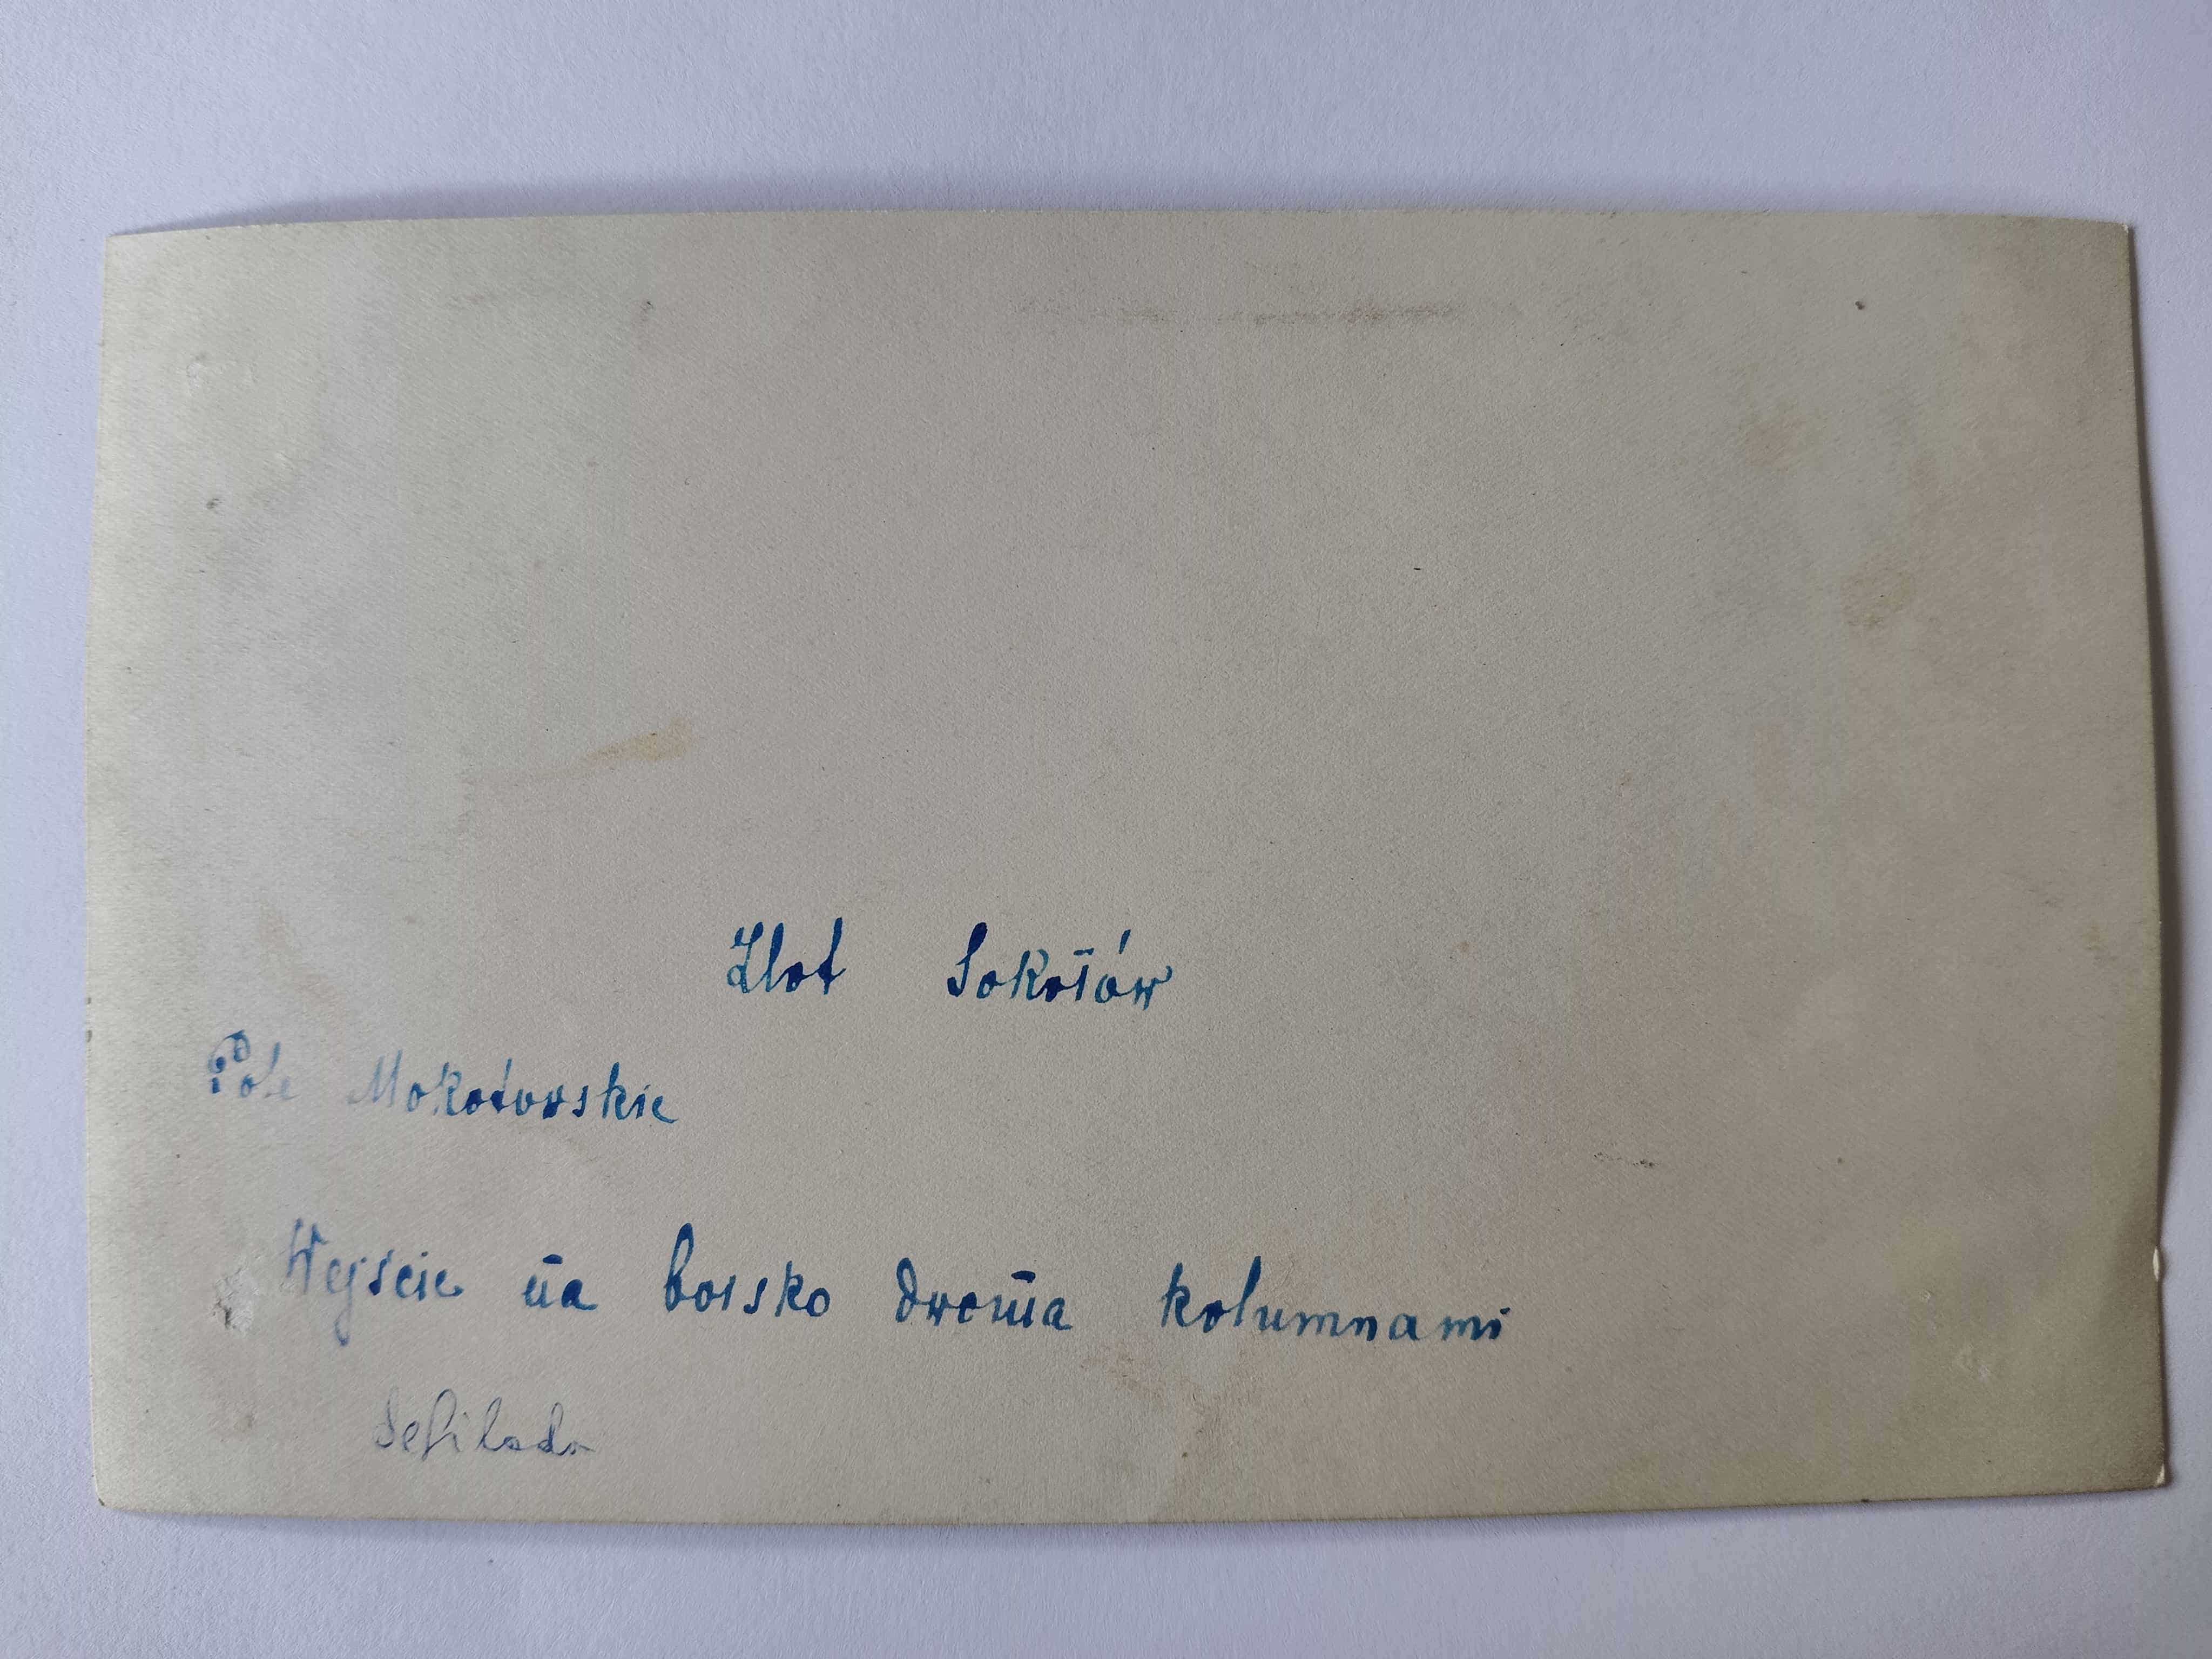 Zlot Sokołów
Pole Mokotowskie
Wejście na boisko dwoma kolumnami
Defilada